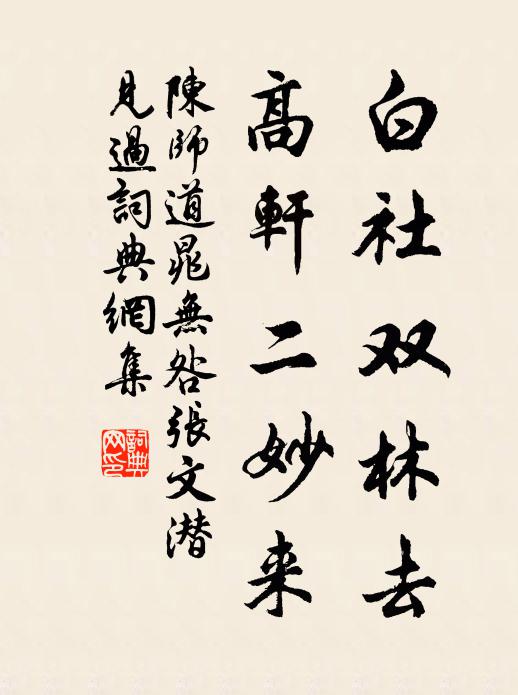 白社双林去
高軒二妙来
陳師道晁無咎張文潜
見過詞典網集
詞典網印